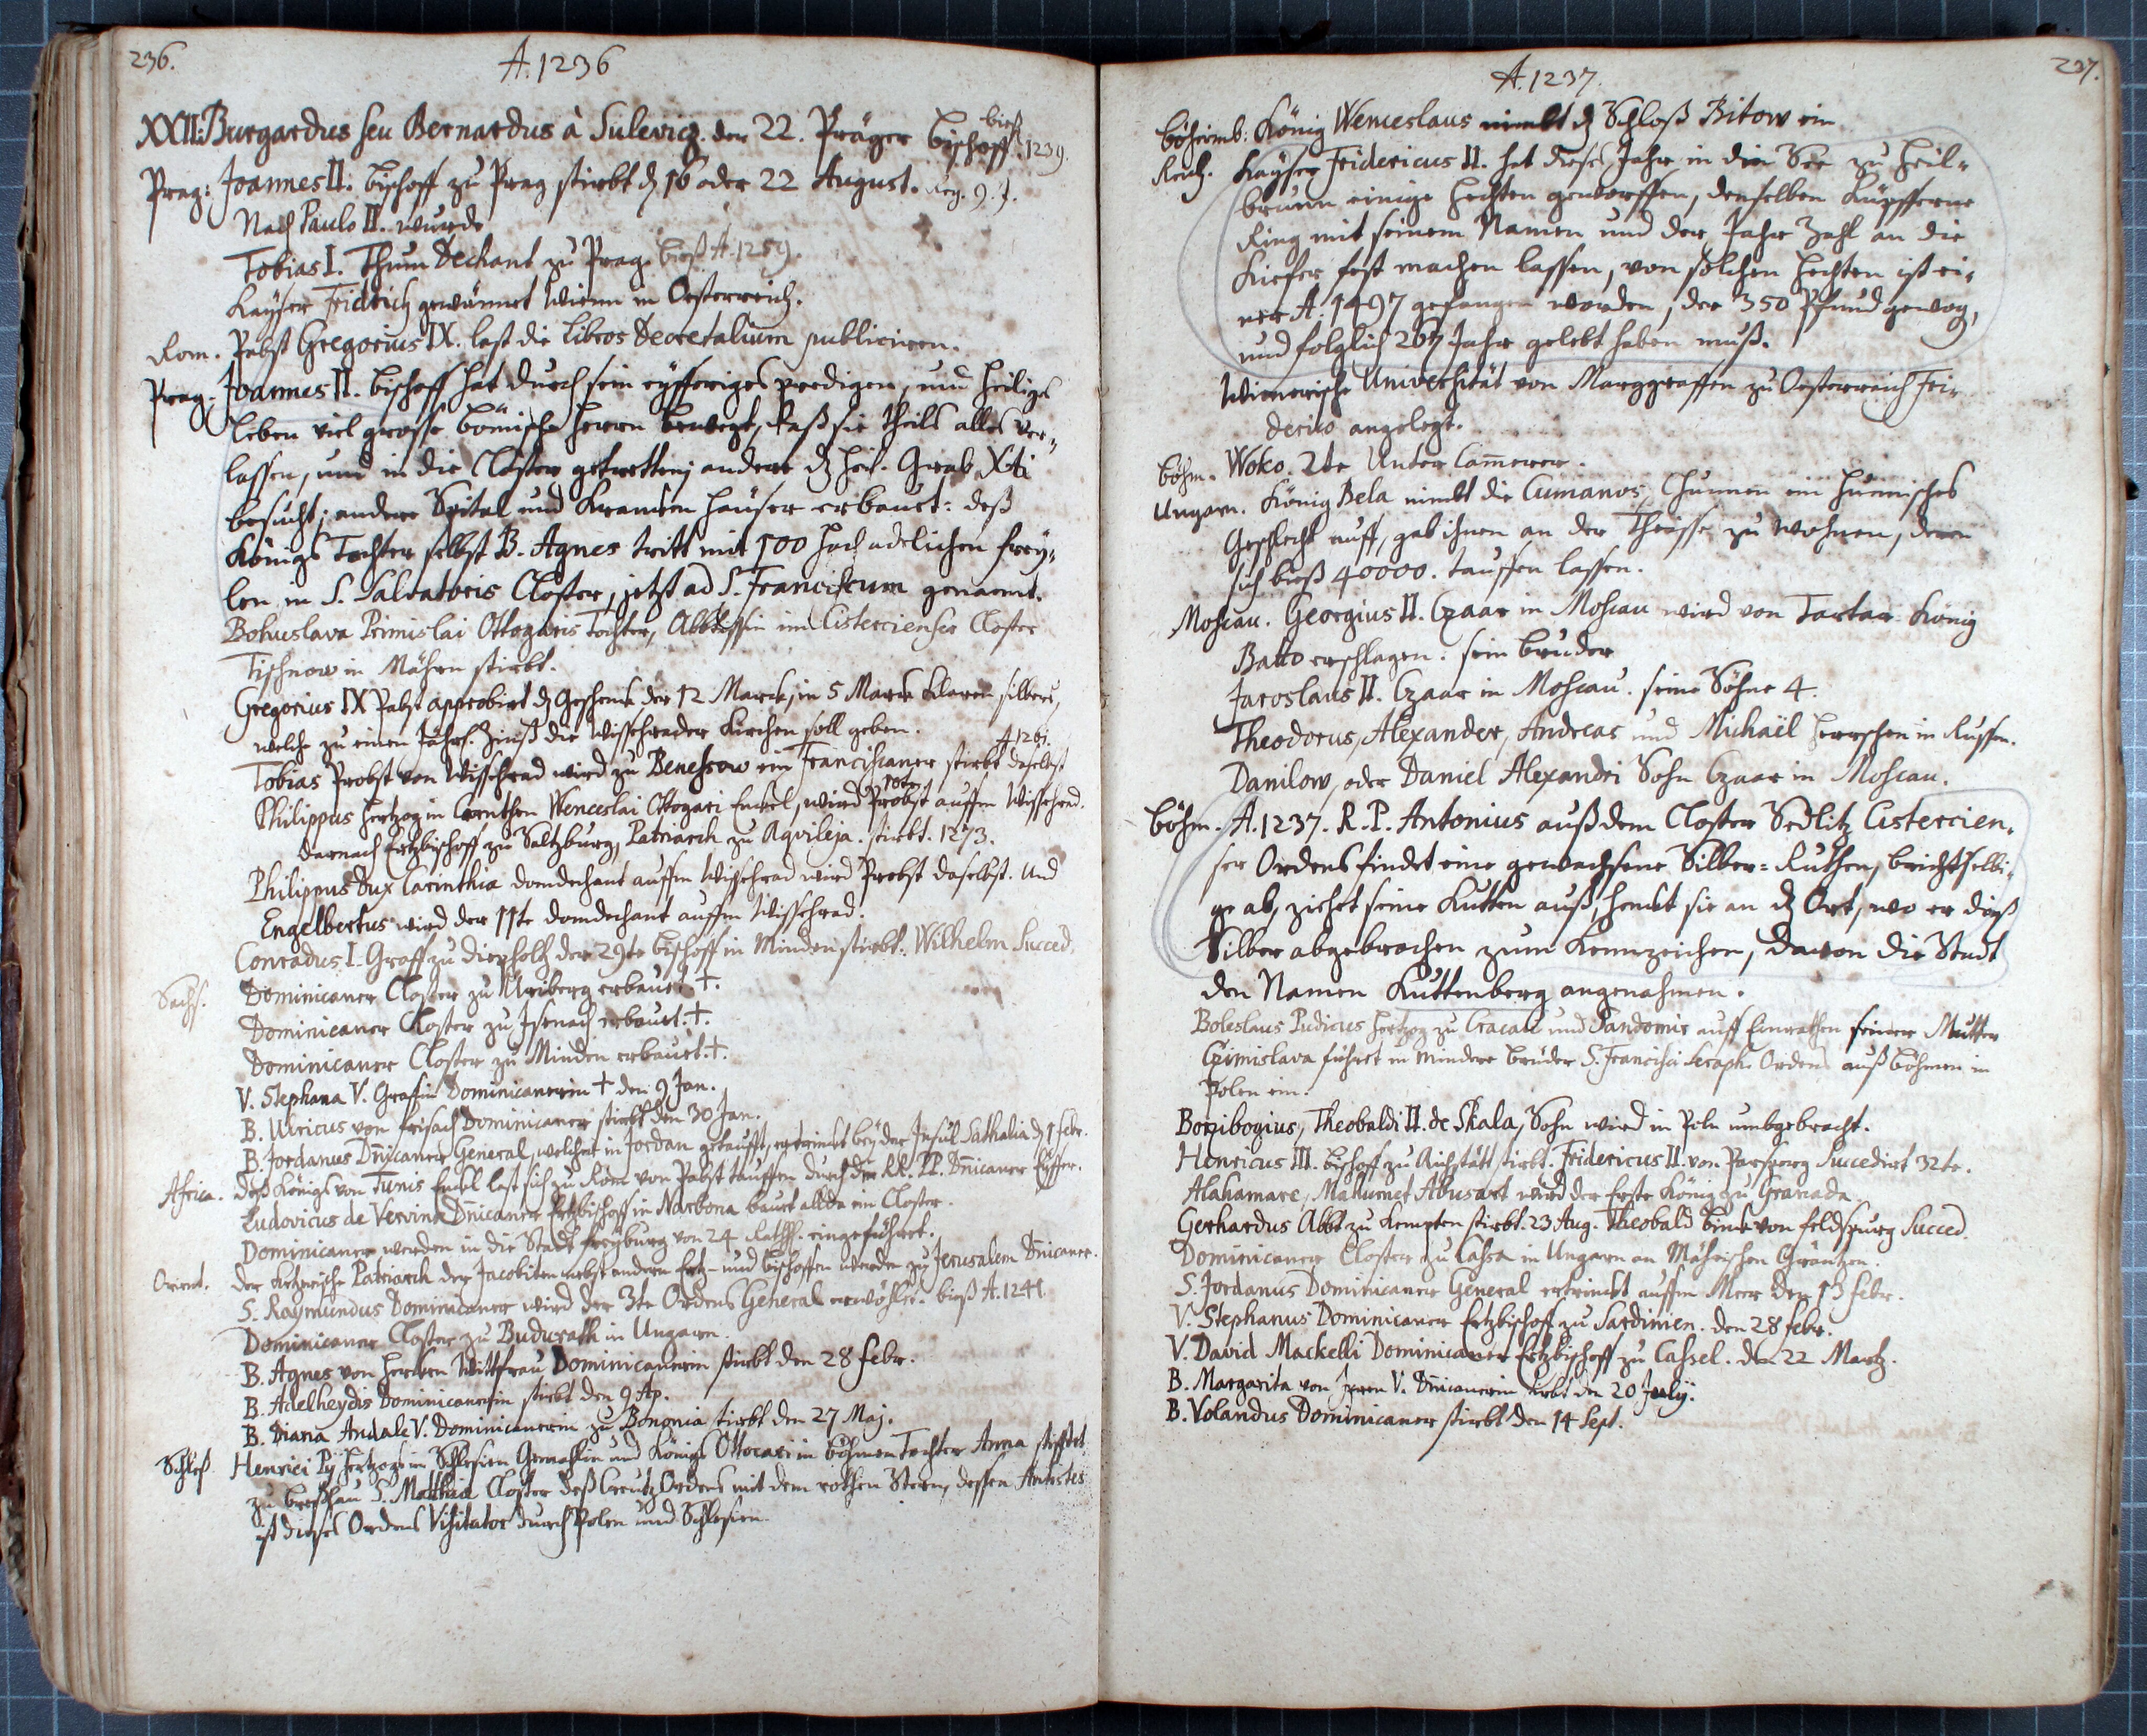 236.
A. 1236
XXII. Burgardus seu Bernardus à Sulevicz. der 22. Präger Bischoff. bieß 1239.
Prag: Joannes II. Bischoff zu Prag stirbt d 16 oder 22 August. Reg. 9. J.
Nach Paulo II. wurde
Tobias I. Thum Dechant zu Prag. bieß A. 1259.
Kayser Fridrich gewinnet Wienn in Oesterreich.
Rom. Pabst Gregorius IX. last die Libros Decretalium publiciren.
Prag. Joannes II. Bischoff hat durch sein eyfferiges predigen, und heiliges
leben viel grosse Bömische Herren bewegt, daß sie theils alles ver-
lassen, und in die Clöster getretten; andere d heil. Grab Xti
besucht; andere Spital und Krancken häuser erbauet: deß
Königs Tochter selbst B. Agnes tritt mit 100 hoch adelichen frey-
len in S. Salvatoris Closter, jetzt ad S. Franciscum genannt.
Bohuslava Primislai Ottogaris Tochter, Abbtissin im Cistercienser Closter
Tischnow in Mähren stirbt.
Gregorius IX Pabst approbirt d Geschenk der 12 Marck, in 5 Marck klaren silbers,
welche zu einen Jährl. Zinß die Wissehrader Kirchen soll geben.
Tobias Probst von Wissehrad wird zu Benessow ein Franciscaner stirbt daselbst A 1261.
Philippus Hertzog in Cärnthen Wenceslai Ottogari Enckel, wird 10te Probst auffm Wissehrad.
darnach Ertzbischoff zu Saltzburg, Patriarch zu Aqvileja. stirbt. 1273.
Philippus Dux Carinthia domdechant auffm Wissehrad wird Probst daselbst. Und
Engelbertus wird der 11te domdechant auffm Wissehrad.
Conradus I. Graff zu Diepholtz der 29te Bischoff in Minden stirbt. Wilhelm Succed.
Sachs. Dominicaner Closter zu Freiberg erbauet. †.
Dominicaner Closter zu Isenach erbauet. †.
Dominicaner Closter zu Minden erbauet. †.
V. Stephana V. Grafin Dominicanerin † den 9 Jan.
B. Ulricus von Frisach Dominicaner stirbt den 30 Jan.
B. Jordanus Dnicaner General, welcher in Jordan getaufft, ertrinckt bey der Insul Sathalia d 1 Febr.
Africa. Deß Königs von Tunis Enckl last sich zu Rom von Pabst tauffen durch der RR. PP. Dnicaner Eyffer.
Ludovicus de Dnicaner Ertzbischoff in Narbona bauet allda ein Closter.
Dominicaner werden in die Stadt Freyburg von 24 Rathh. eingeführet.
Orient. der Ketzerische Patriarch der Jacobiten nebst andern Ertz- und Bischoffen werden zu Jerusalem Dnicaner.
S. Raymundus Dominicaner wird der 3te Ordens General erwöhlet. bieß A. 1241
Dominicaner Closter zu Budurath in Ungarn.
B. Agnes von Herken Wittfrau Dominicanerin stirbt den 28 Febr.
B. Adelheydis Dominicanerin stirbt den 9 Ap.
B. Diana Andale V. Dominicanerin zu Bononia stirbt den 27 Maj.
Schles. Henrici Pij Hertzogs in Schlesien Gemahlin und Königs Ottocari in Böhmen Tochter Anna stifftet
zu Breßlau S. Matthiæ Closter deß Creutz Ordens mit dem rothen Stern, dessen Antistes
ist dieses Ordens Visitator durch Polen und Schlesien.
237.
A. 1237.
böheimb: König Wenceslaus nimbt d Schloß Bitow ein
Reich. Kayser Fridericus II. hat dieses Jahr in den See zu Heil-
brunn einige Hechten geworffen, denselben Küpfferne
Ring mit seinem Namen und der Jahr Zahl an die
Kiefer fest machen lassen, von solchen Hechten ist ei-
ner A. 1497 gefangen worden, der 350 Pfund gewog,
und folglich 267 Jahr gelebt haben muß.
Wienerische Universität von Marggraffen zu Oesterreich Fri-
derico angelegt.
böhm. Woko. 2te Unter Cammerer.
Ungarn. König Bela nimbt die Cumanos, Chunnen ein Hunnisches
Geschlecht auff, gab ihnen an der Theisse zu wohnen, deren
sich bieß 40000. tauffen lassen.
Moscau. Georgius II. Czaar in Moscau wird von Tartar König
Batto erschlagen. sein bruder
Jaroslaus II. Czaar in Moscau. seine Söhne 4.
Theodorus, Alexander, Andreas und Michaël herrschen in Russen.
Danilow, oder Daniel Alexandri Sohn Czaar in Moscau.
böhm. A. 1237. R. P. Antonius auß dem Closter Sedlitz Cistercien-
ser Ordens findet eine gewachsene Silber-Ruthen, bricht selbi-
ge ab, ziehet seine Kutten auß, henckt sie an d Ort, wo er dieß
Silber abgebrochen zum Kennzeichen, davon die Stadt
den Namen Kuttenberg angenohmen.
Boleslaus Pudicus Hertzog zu Cracau und Sandomir auff Einrathen seiner Mutter
Grimislava führet in mindere brüder S. Francisci Seraph. Ordens auß böhmen in
Polen ein.
Borzibogius, Theobaldi II. de Skala, Sohn wird in Poln umbgebracht.
Henricus III. Bischoff zu Aichstätt stirbt. Fridericus II. von Parsperg Succedirt 32te.
Alahamare, Mahumet Abusart wird der Erste König zu Granada.
Gerhardus Abbt zu Kempten stirbt. 23 Aug. Theobald von Succed.
Dominicaner Closter zu Cassa in Ungarn an Mährischen Gräntzen.
S. Jordanus Dominicaner General ertrinckt auffm Meer den 13 Febr.
V. Stephanus Dominicaner Ertzbischoff zu Sardinien. den 28 Febr.
V. David Mackelli Dominicaner Ertzbischoff zu Cassel. den 22 Martz.
B. Margarita von Ypern V. Dnicanerin stirbt den 20 Julij.
B. Volandus Dominicaner stirbt den 14 Sept.